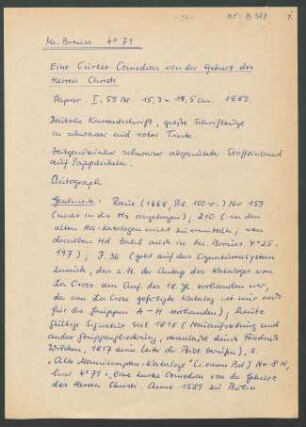 - 51 - NF-B 387
1.
Ms. Boruss 4° 71
Eine Kurtze Comedien von der Geburt des
Herren Christi
Papier I, 59 Bl. 15,3 × 19,5 cm. 1589
Deutsche Kurrentschrift, große Schriftzüge
in schwarzer und roter Tinte
Zeitgenössischer schwarzer abgenutzter Stoffeinband
auf Pappdeckeln.
Autograph.
Raue (1668, Bl. 100 v.) Nr 153
(nicht in die Hs eingetragen); 210 (in den
alten Hss.-katalogen nicht zu ermitteln, von
derselben Hd auch in Ms. Boruss 4° 25.
197); J. 36 (geht auf das Signatursystem
zurück, das z. Zt. der Anlage des Kataloges von
La Croze am Anf. des 18. Jh vorhanden war,
der von La Croze gefertigte Katalog ist nur noch
für die Gruppen A-H vorhanden), heute
gültige Signatur seit 1818 (Neuaufstellung und
andere Gruppengliederung, veranlaßt durch Friedrich
Wilken, 1817 zum Leiter der Bibl berufen).
"Alte Manuscripten-Kataloge" Nr 8 H,
4° 71. Eine kurze Comedien von der Geburt
des Herren Christi. Anno 1589 zu Berlin